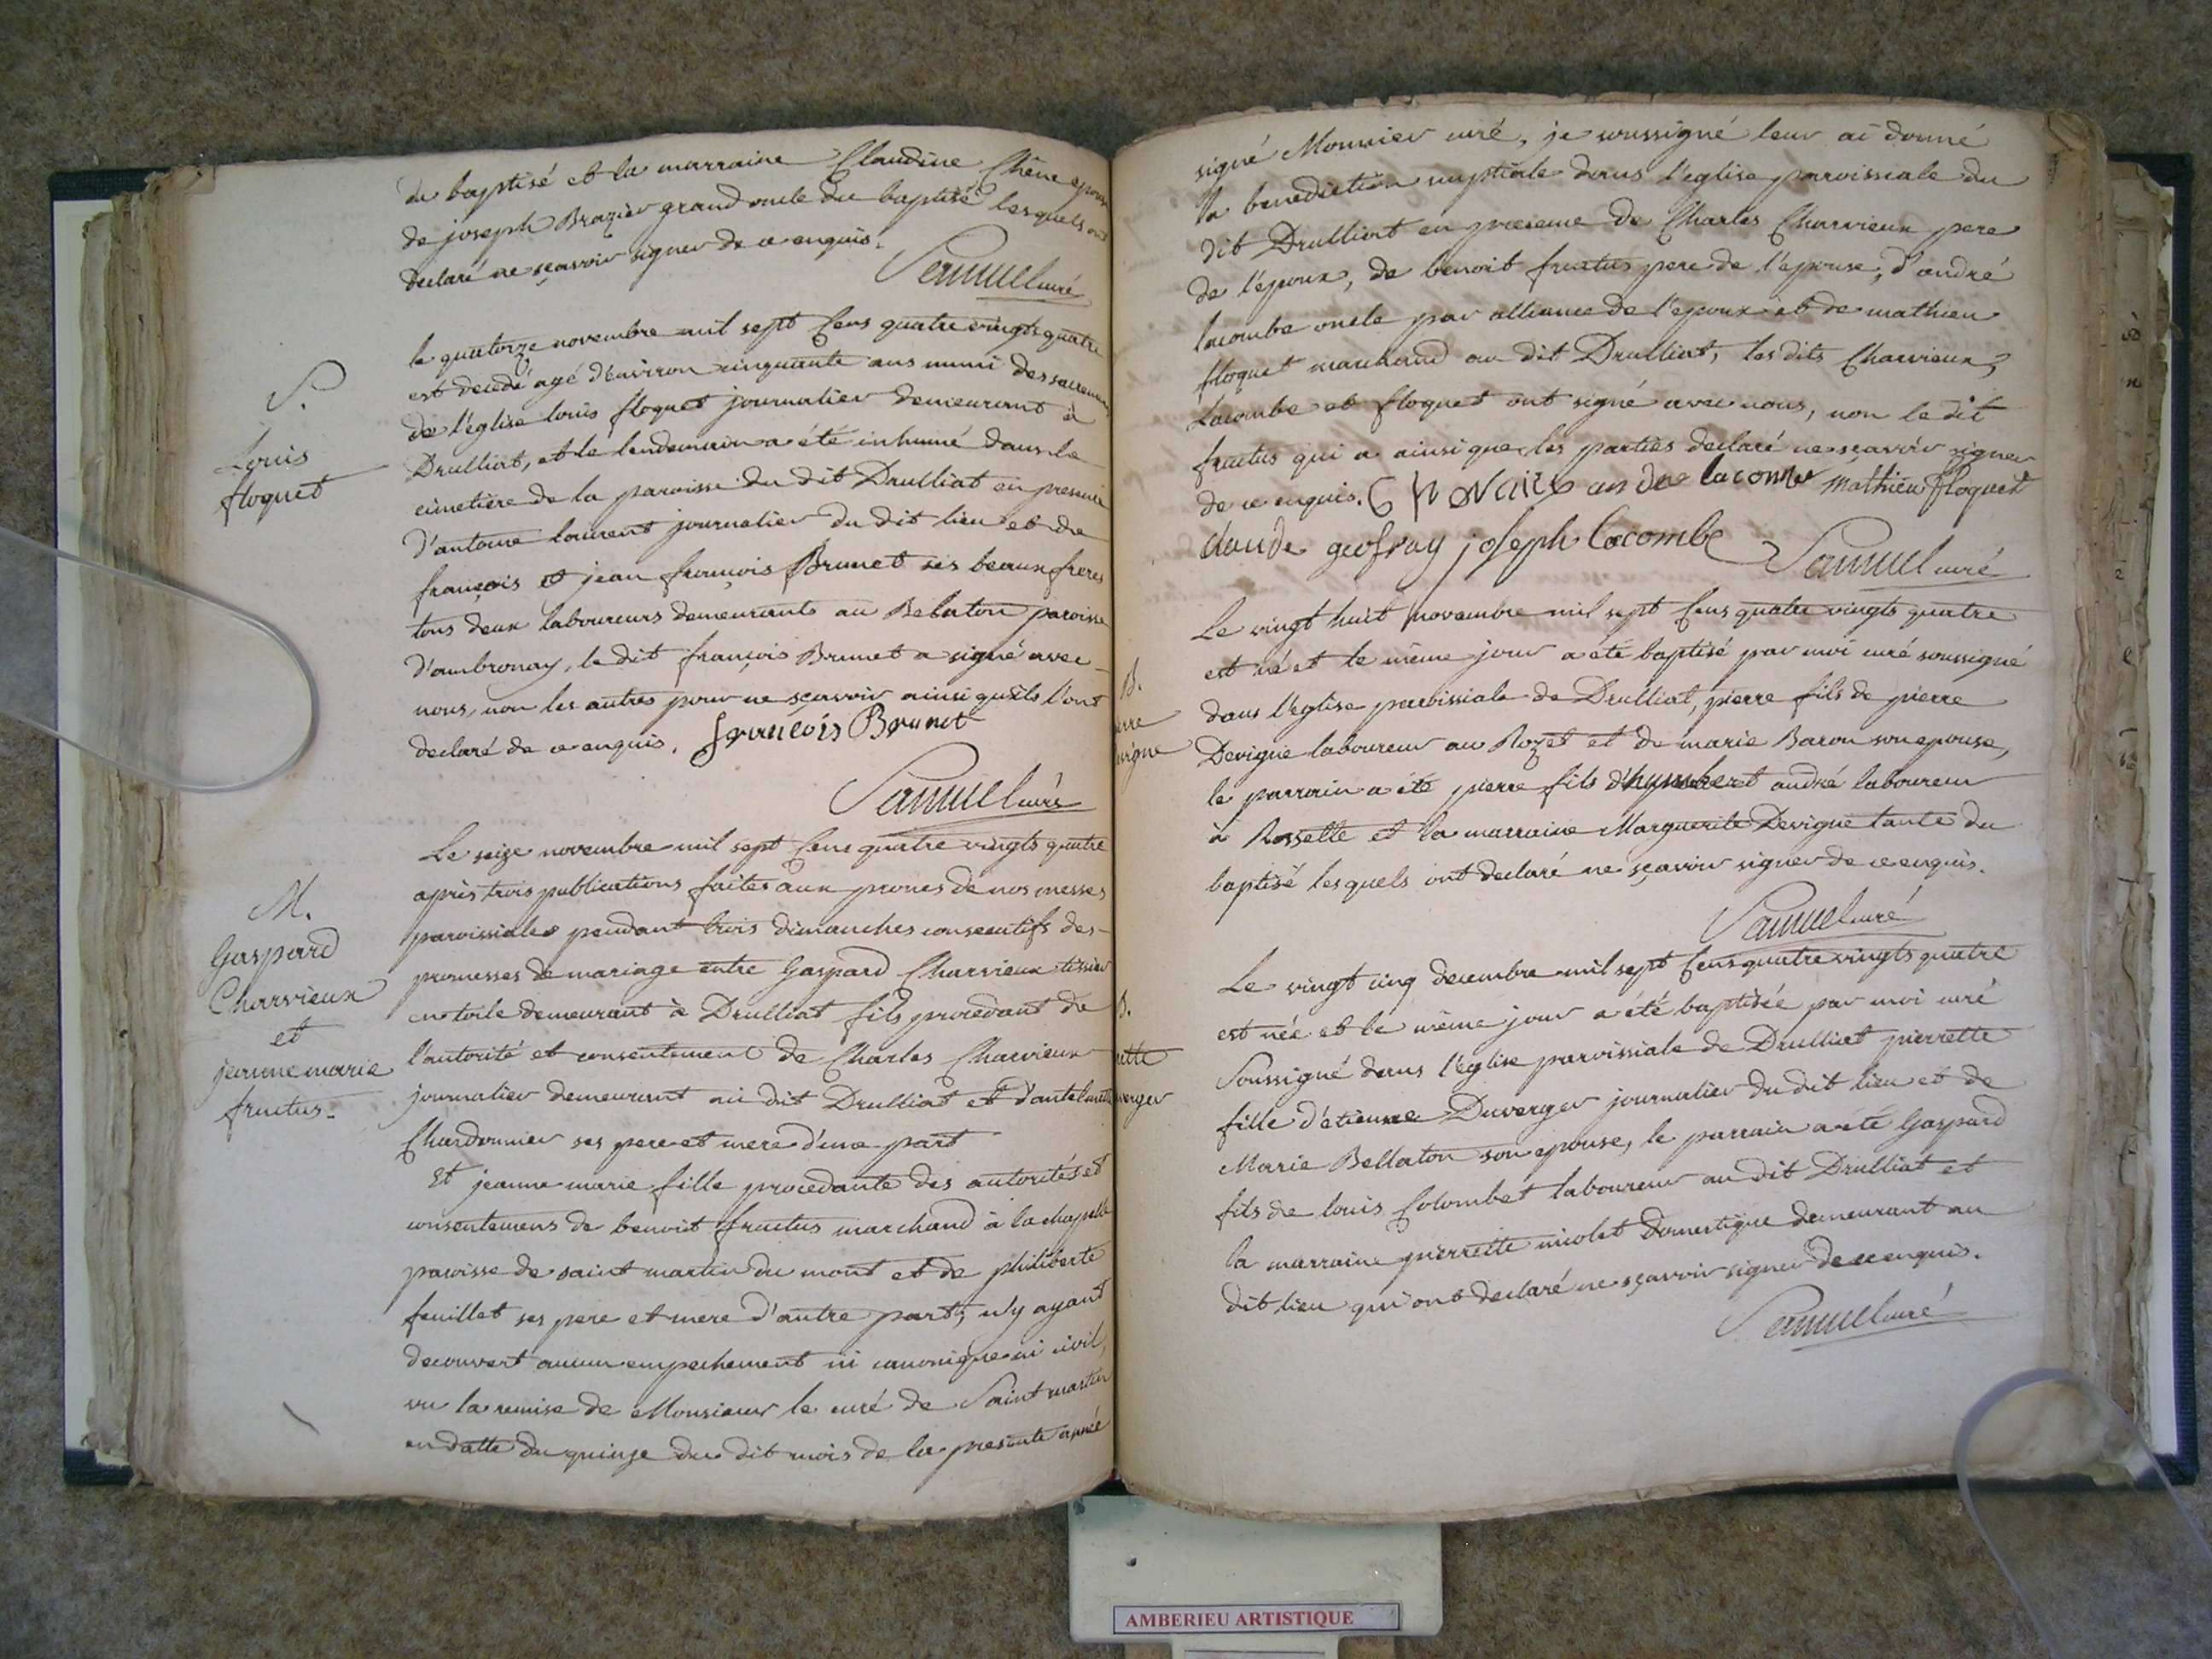 du baptisé et la marraine Claudine Chêne epouse
de joseph Brazier grand oncle du baptisé lesquels ont
declaré ne sçavoir signer de ce enquis.
Samuel curé
S.
Louis
floquet
le quatorze novembre mil sept Cens quatre vingts quatre
est decedé agé d'environ cinquante ans muni des sacremens
de l'église louis floquet journalier demeurant à
Drulliat, et le lendemain a été inhumé dans le
cimetiere de la paroisse du dit Drulliat en presence
d'antoine laurent journalier du dit lieu et de
françois et jean françois Brunet ses beaux freres
tous deux laboureurs demeurants au Belaton paroisse
d'ambronay, le dit françois Brunet a signé avec
nous, non les autres pour ne sçavoir ainsi qu'ils l'ont
declaré de ce enquis. francois Brunet
Samuel curé
M.
Gaspard
Charvieux
et
jeanne marie
fructus.
Le seize novembre mil sept Cens quatre vingts quatre
après trois publications faites aux prones de nos messes
paroissiales pendant trois dimanches consecutifs des
promesses de mariage entre Gaspard Charvieux tissier
en toile demeurant à Drulliat fils procedant de
l'autorité et consentement de Charles Charvieux
journalier demeurant au dit Drulliat et d'antelmette
Chardonnier ses pere et mere d'une part
Et jeanne marie fille procedante des autorités et
consentemens de benoit fructus marchand à la chapelle
paroisse de saint martin du mont et de philiberte
feuillet ses pere et mere d'autre part, n'y ayant
decouvert aucun empechement ni canonique ni civil,
vu la remise de Monsieur le curé de Saint martin
en datte du quinze du dit mois de la presente année
signé Monnier curé, je soussigné leur ai donné
la benediction nuptiale dans l'eglise paroissiale du
dit Drulliat en presence de Charles Charvieux pere
de l'epoux, de benoit fructus pere de l'epouse, d'andré
lacombe oncle par alliance de l'epoux et de mathieu
floquet marchand au dit Drulliat, les dits Charvieux,
Lacombe et floquet ont signé avec nous, non le dit
fructus qui a ainsi que les parties declaré ne sçavoir signer
de ce enquis. andre lacombe Mathieu floquet
claude geofray joseph lacombe Samuel curé
B.
erre
evigne
Le vingt huit novembre mil sept Cens quatre vingts quatre
est né et le même jour a été baptisé par moi curé soussigné
dans l'eglise paroissiale de Drulliat, pierre fils de pierre
Devigne laboureur au Rozet et de marie Baron son epouse,
le parrain a été pierre fils d'humbert andré laboureur
à Rossette et la marraine Marguerite Devigne tante du
baptisé lesquels ont declaré ne sçavoir signer de ce enquis.
Samuel curé
B.
ette
verger
Le vingt cinq decembre mil sept Cens quatre vingts quatre
est née et le même jour a été baptisée par moi curé
Soussigné dans l'église paroissiale de Drulliat pierrette
fille d'étienne Duverger journalier du dit lieu et de
Marie Bellaton son epouse, le parrain a été Gaspard
fils de louis Colombet laboureur au dit Drulliat et
la marraine pierrette nicolet domestique demeurant au
dit lieu qui ont declaré ne sçavoir signer de ce enquis.
Samuel curé
AMBERIEU ARTISTIQUE